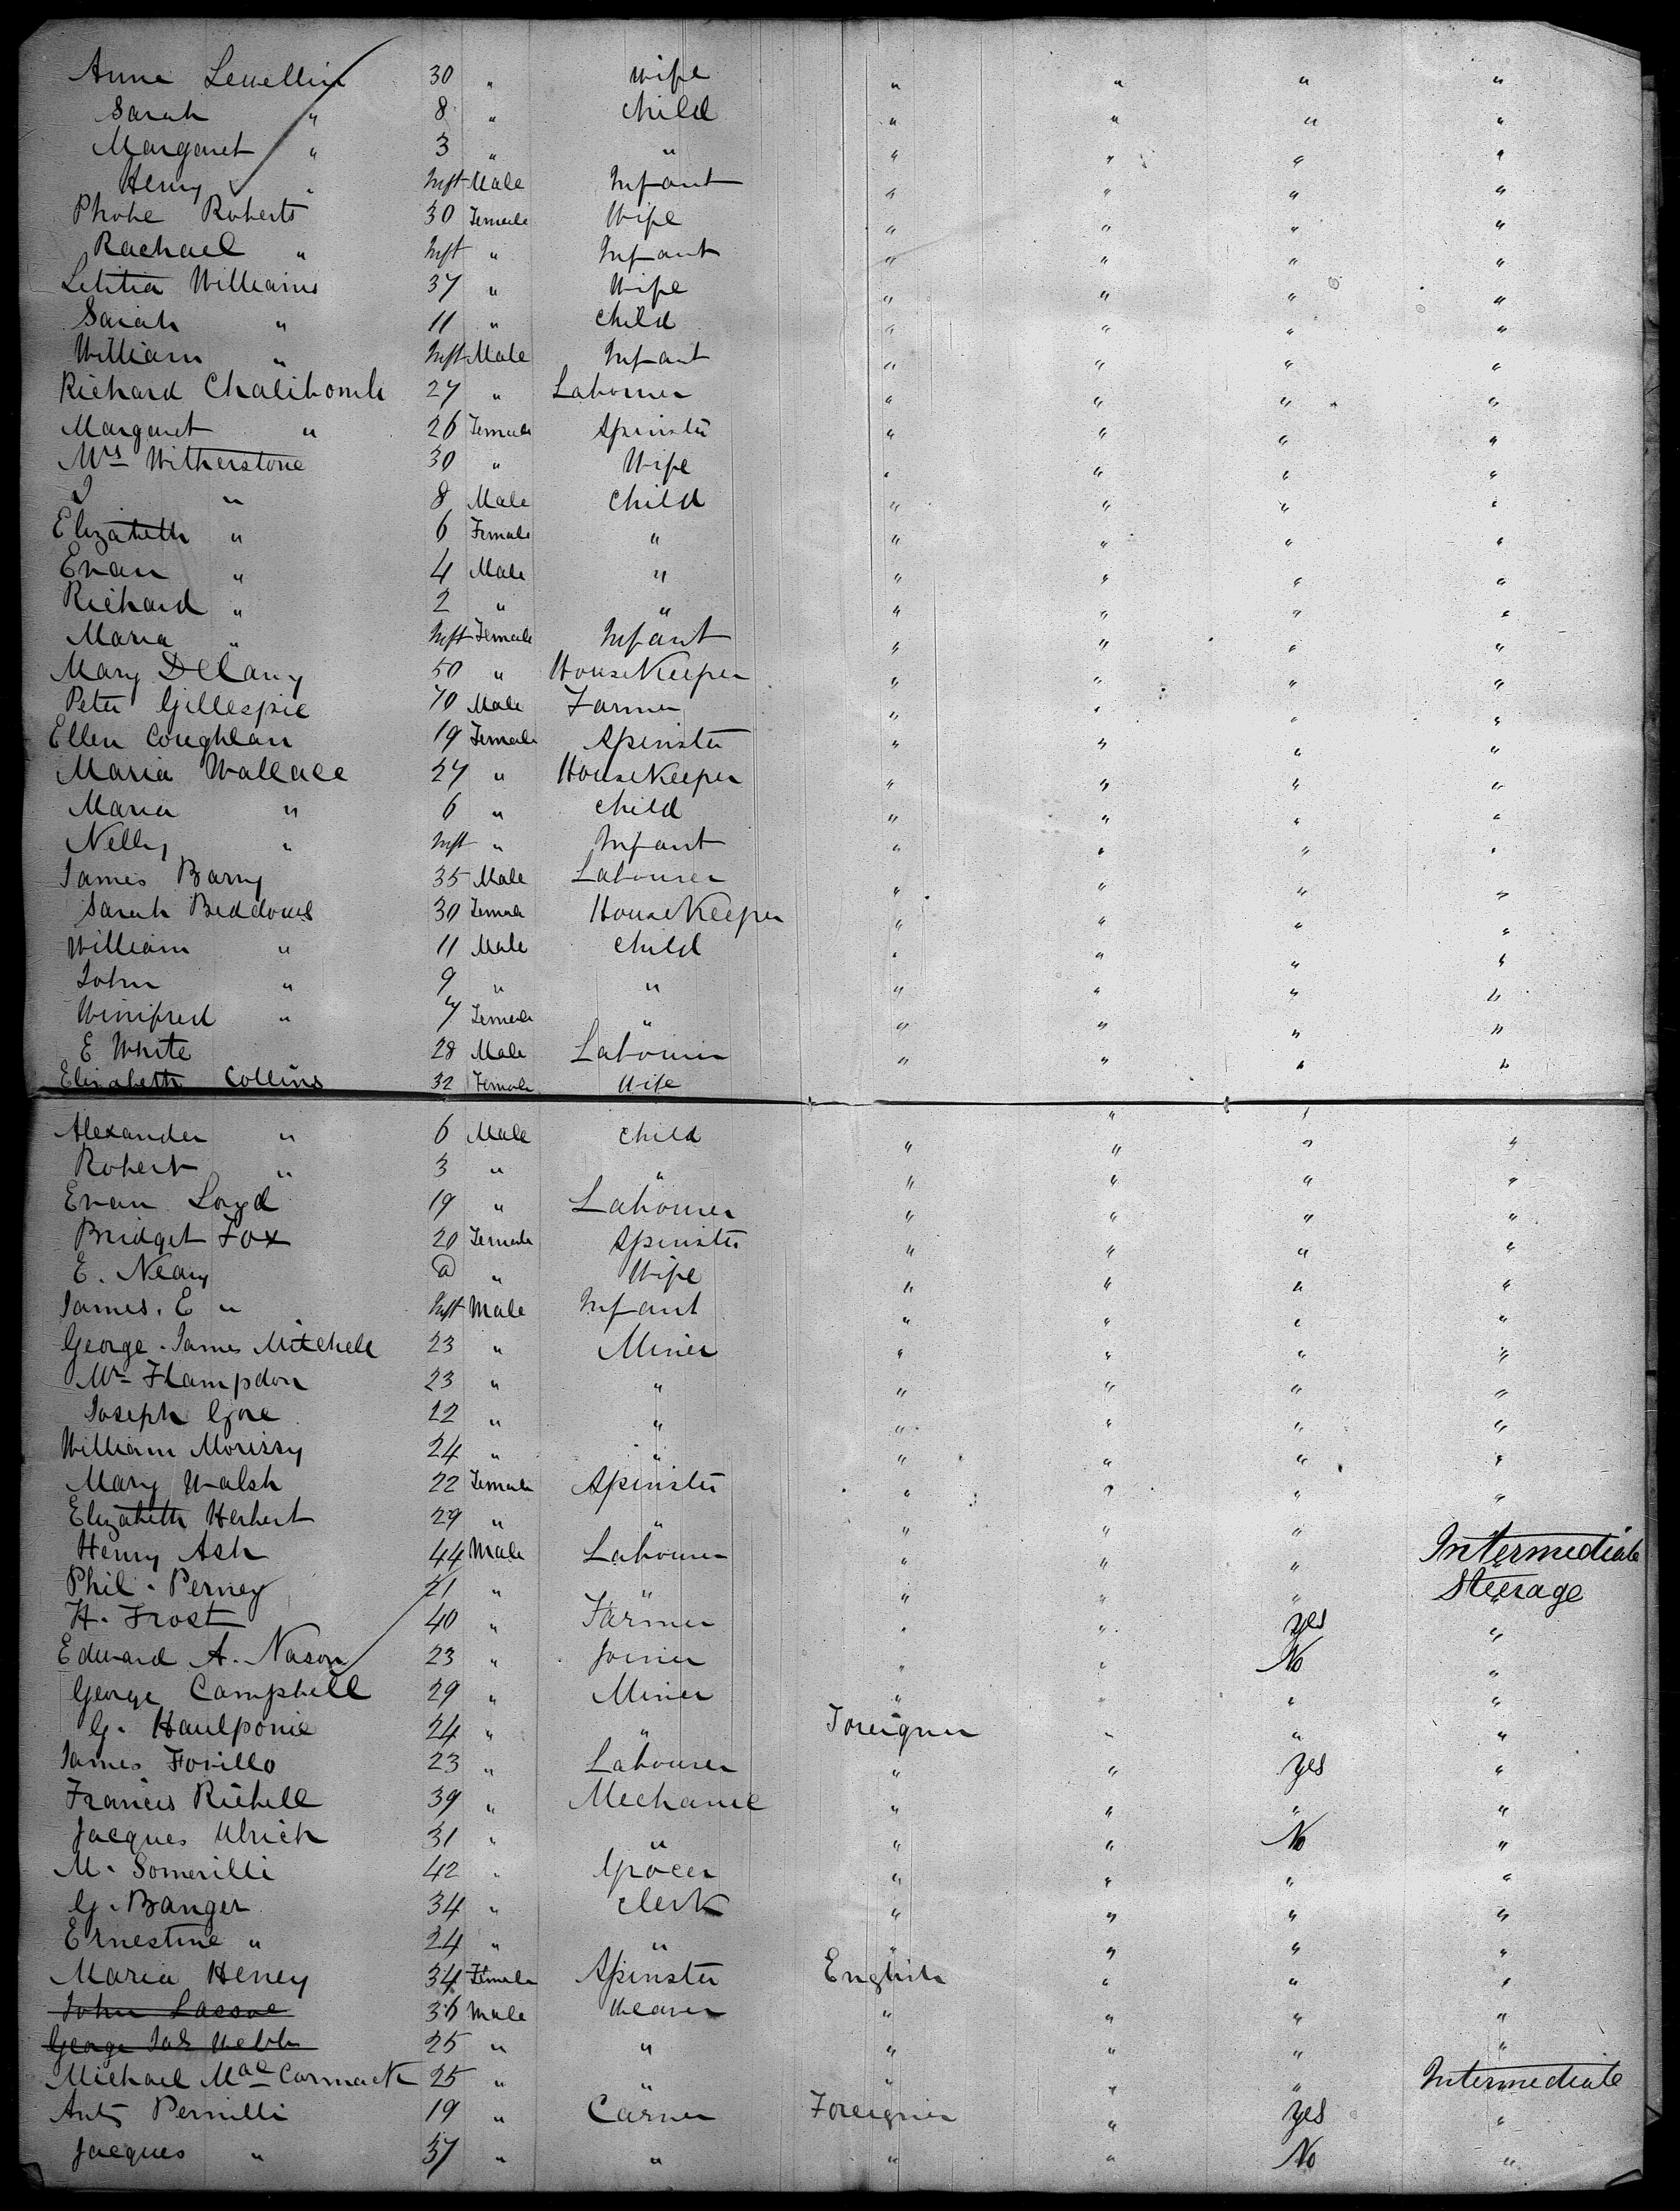 Anne Lewellin 30 " Wife " " " "
Sarah " 8 " Child " " " "
Margaret " 3 " " " " " "
Henry " Inft Male Infant " " " "
Phobe Roberts 30 Female Wife " " " "
Rachael " Inft " Infant " " " "
Letitia Williams 37 " Wife " " " "
Sarah " 11 " Child " " " "
William " Inft Male Infant " " " "
Richard Chalibomb 27 " Labourer " " " "
Margaret " 26 Female Spinster " " " "
Mrs Witherstone 30 " Wife " " " "
J " 8 Male Child " " " "
Elizabeth " 6 Female " " " " "
Evan " 4 Male " " " " "
Richard " 2 " " " " " "
Maria " Inft Female Infant " " " "
Mary Delany 50 " HouseKeeper " " " "
Peter Gillespie 70 Male Farmer " " " "
Ellen Coughlan 19 Female Spinster " " " "
Maria Wallace 27 " HouseKeeper " " " "
Maria " 6 " Child " " " "
Nelly " Inft " Infant " " " "
James Barry 35 Male Labourer " " " "
Sarah Beddows 30 Female HouseKeeper " " " "
William " 11 Male Child " " " "
John " 9 " " " " " "
Winifred " 7 Female " " " " "
E White 28 Male Labourer " " " "
Elizabeth Collins 32 Female Wife " "
Alexander " 6 Male Child " " " "
Robert " 3 " " " " " "
Evan Loyd 19 " Labourer " " " "
Bridget Fox 20 Female Spinster " " " "
E. Neary @ " Wife " " " "
James. E " Inft Male Infant " " " "
George. James Mitchell 23 " Miner " " " "
Mr Hampdon 23 " " " " " "
Joseph Gore 22 " " " " " "
William Morissy 24 " " " " " "
Mary Walsh 22 Female Spinster " " " "
Elizabeth Herbert 29 " " " " " "
Henry Ash 44 Male Labourer " " " Intermediate
Phil. Perney 21 " " " " " Steerage
H. Frost 40 " Farmer " " yes "
Edward A. Nason 23 " Joiner " " No "
George Campbell 29 " Miner " " " "
G. Haulponie 24 " " Foreigner " " "
James Forillo 23 " Labourer " " yes "
Francis Richell 39 " Mechanic " " " "
Jacques Ulrich 31 " " " " No "
M. Somerilli 42 " Grocer " " " "
G. Banger 34 " Clerk " " " "
Ernestine " 24 " " " " " "
Maria Heney 34 Female Spinster English " " "
John Lassoe 36 Male Weaver " " " "
George Jas Webb 25 " " " " " "
Michael Mac Cormack 25 " " " " " Intermediate
Anty Pernilli 19 " Carver Foreigner " yes "
Jacques " 37 " " " " No "